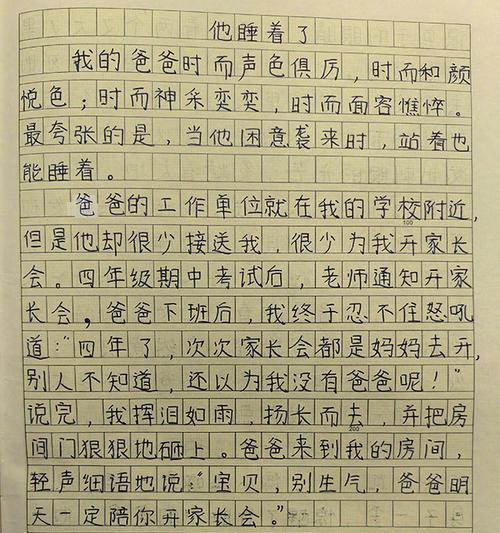 他睡着了
我的爸爸时而声色俱厉，时而和颜
悦色；时而神采奕奕，时而面容憔悴。
最夸张的是，当他困意袭来时，站着也
能睡着。
爸爸的工作单位就在我的学校附近，
100
但是他却很少接送我，很少为我开家长
会。四年级期中考试后，老师通知开家
长会，爸爸下班后，我终于忍不住怒吼
道：“四年了，次次家长会都是妈妈去开，
别人不知道，还以为我没有爸爸呢！”
说完，我挥泪如雨，扬长而去，并把房
200
间门狠狠地砸上。爸爸来到我的房间，
轻声细语地说：“宝贝，别生气，爸爸明
天一定陪你开家长会。”